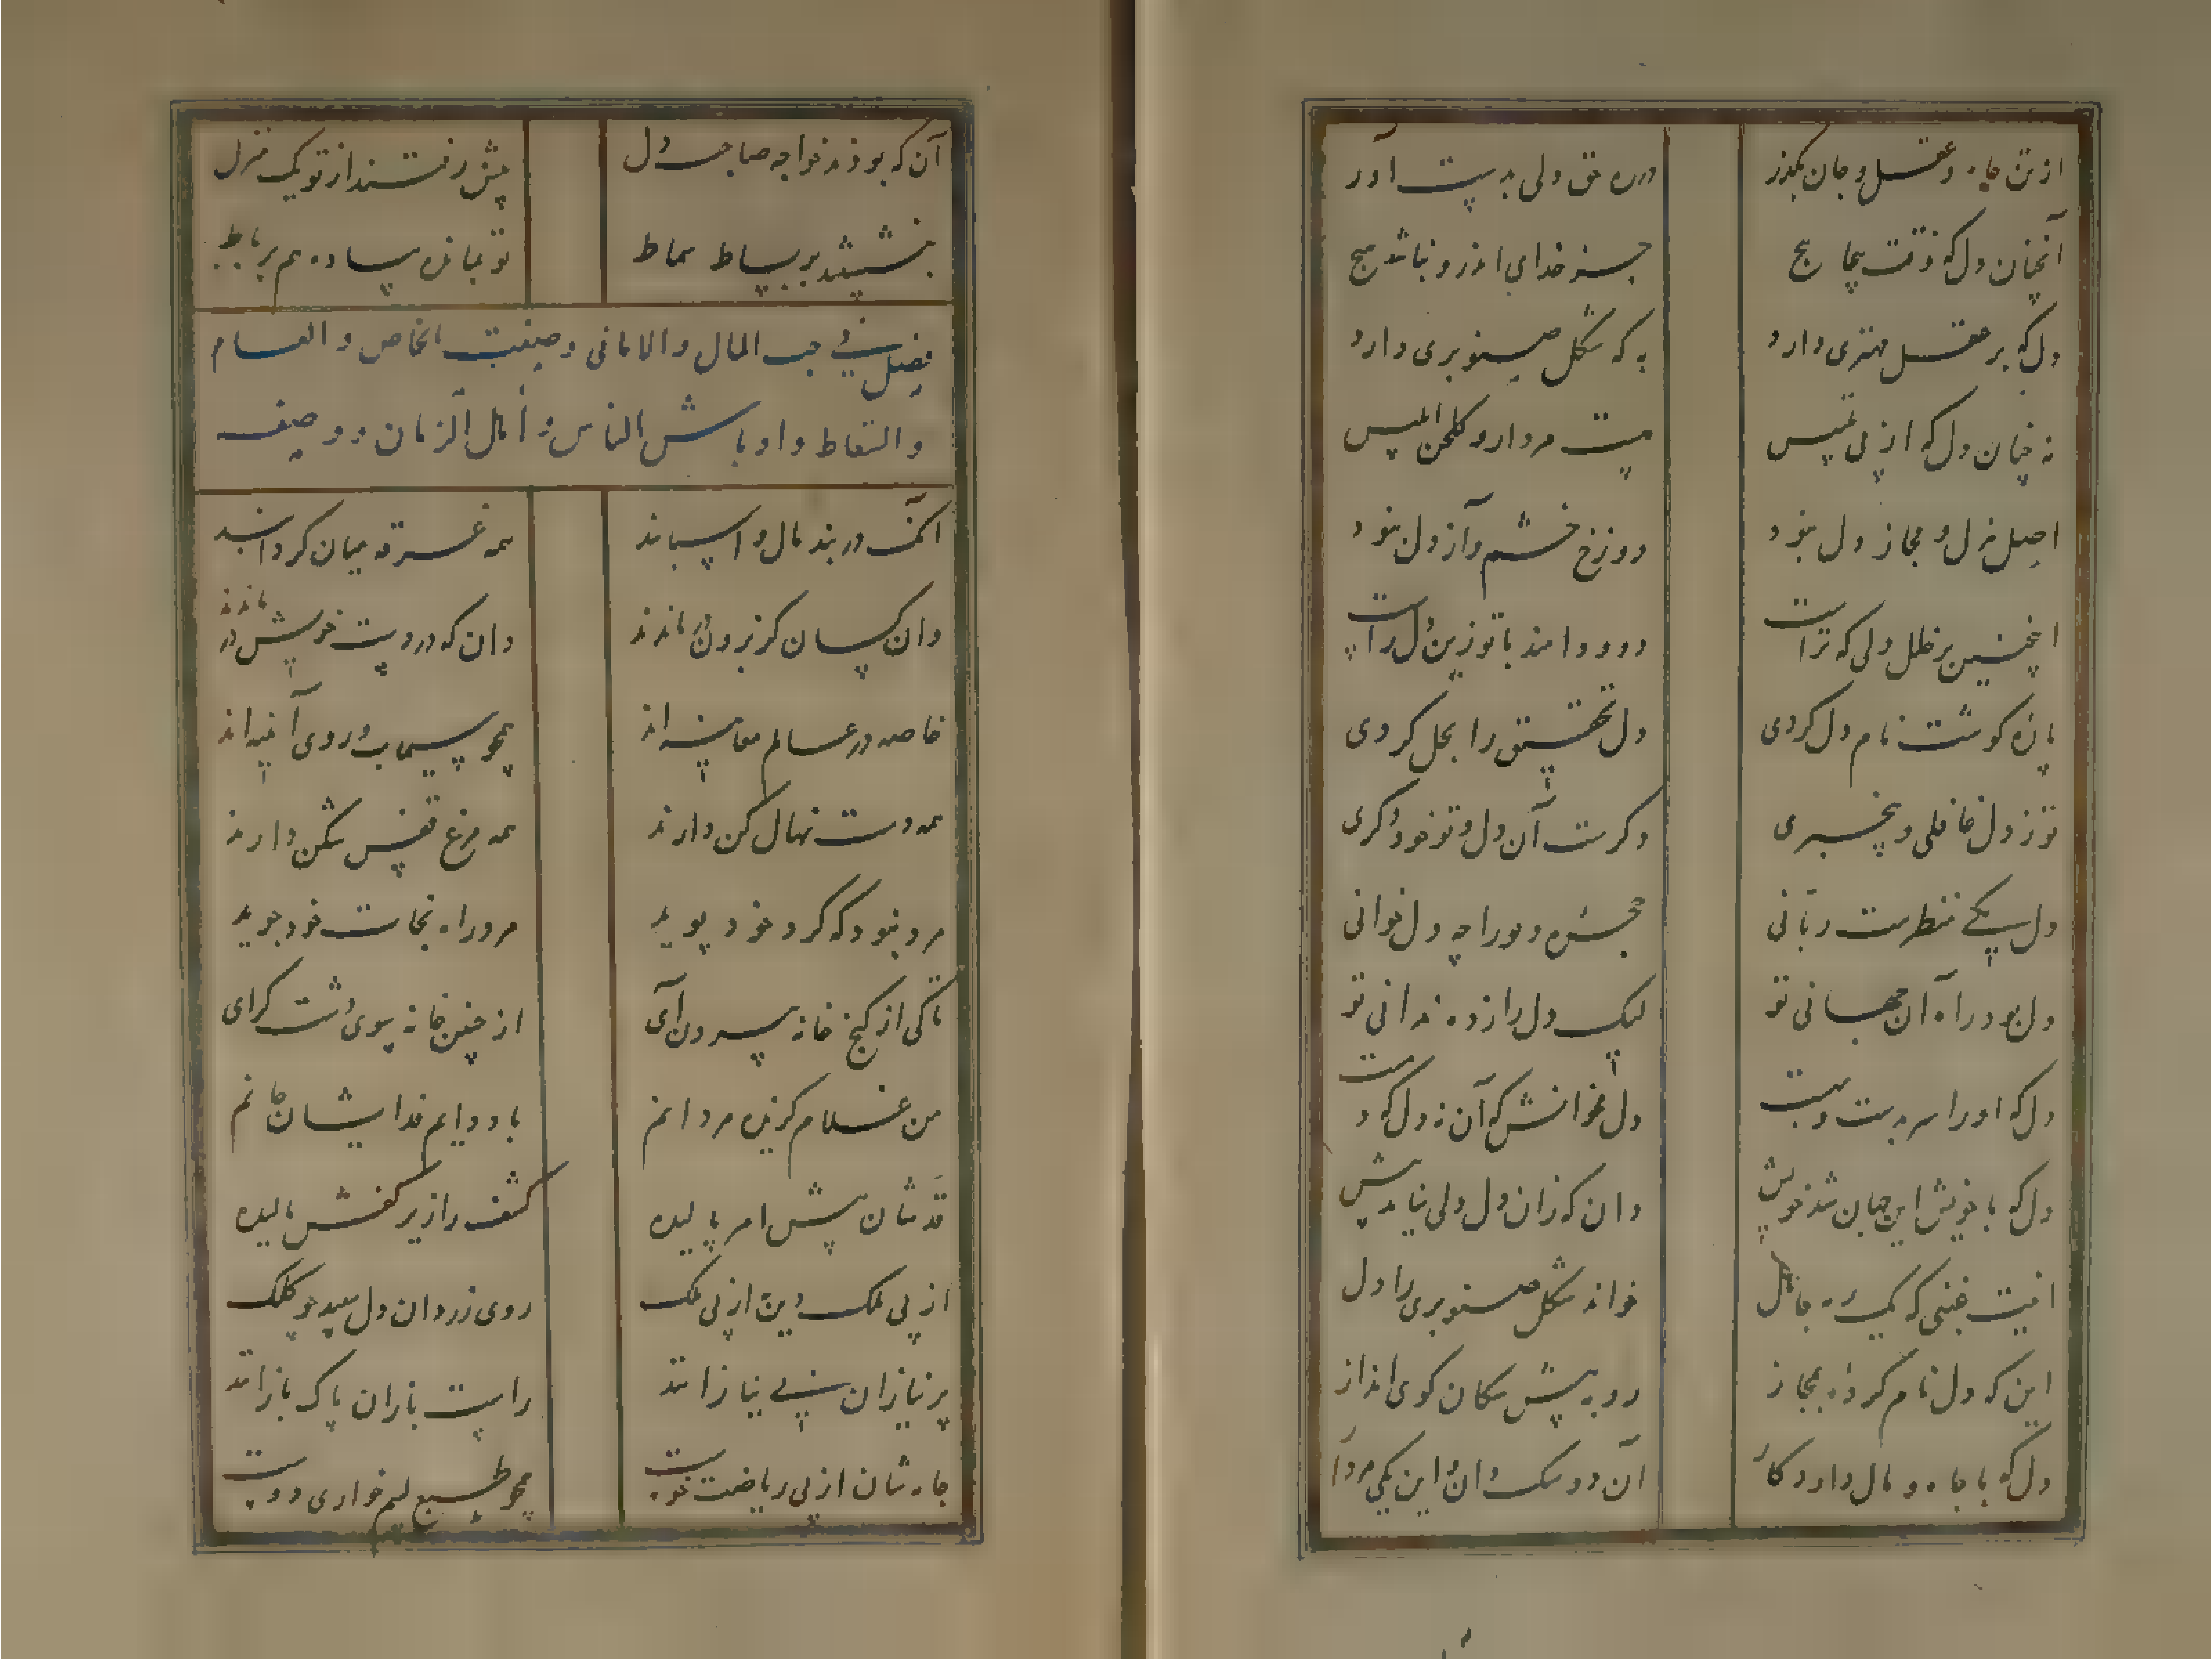 از تن و جاه و عقل و جان بگذر
در ره حق دلی بدست آور
آنچنان دل که وقت پیچاپیچ
جز خدای اندرو نباشد هیچ
دل که بر عقل مهتری دارد
نه که شکل صنوبری دارد
نه چنان دل که از پی تلبیس
هست مردار و گلخن ابلیس
اصل هزل و مجاز دل نبود
دوزخ خشم و آز دل نبود
اینچنین پر خلل دلی که تراست
دد و دامند با تو زین دل راست
پاره گوشت نام دل کردی
دل تحقیق را بحل کردی
تو ز دل غافلی و بیخبری
دگرست آن دل و تو خود دگری
دل یکی منظرست ربانی
حجره دیو را چه دل خوانی
دل بود راه آن جهانی تو
لیک دل را زده ندانی تو
دل که او را سر بدست
دل مخوانش که آن نه دل که
دل که با خویش این جهان شد خویش
دان که زان دل دلی نیاید پیش
اینت غبنی که یک رمه جاهل
خواند شکل صنوبری را دل
این که دل نام کرده بمجاز
رو به پیش سگان کوی انداز
دل که با جاه و مال دارد کار
آن دو سگ دان و این یکی مردار
آن که بودند خواجه صاحب دل
پیش رفتند از تو یک منزل
بنشستند بر بساط سماط
تو بمانده پیاده هم برباط
فصل فی حب المال والامانی و صفت الخاص والعام
والتقاط و اوباش الناس و اهل الزمان و وصف
آنک در بند مال و اسبابند
همه غرقه میان گرداب‌اند
وان کسان کز برون در ماندند
دان که در دست خویش در ماندند
خاصه در عالم معاینه‌اند
همچو سیماب و روی آینه‌اند
همه دست نهال کن دارند
همه مرغ قفس شکن دارند
مرد نبود که گرد خود پوید
مرد راه نجات خود جوید
تا کی از کنج خانه بیرون آی
از چنین خانه سوی دشت گرای
من غلام گزیده مردانم
باد دایم فدایشان جانم
قدشان پیش امر بالیده
کشف را زیر کفش مالیده
از پی ملک دین نه از پی ملک
روی زرد و ان دل سپید چو کلک
بر نیازان بی‌نیازانند
راست بازان پاک بازانند
جاهشان از پی ریاضت خوست
همچو طبع لیم خواری دوست